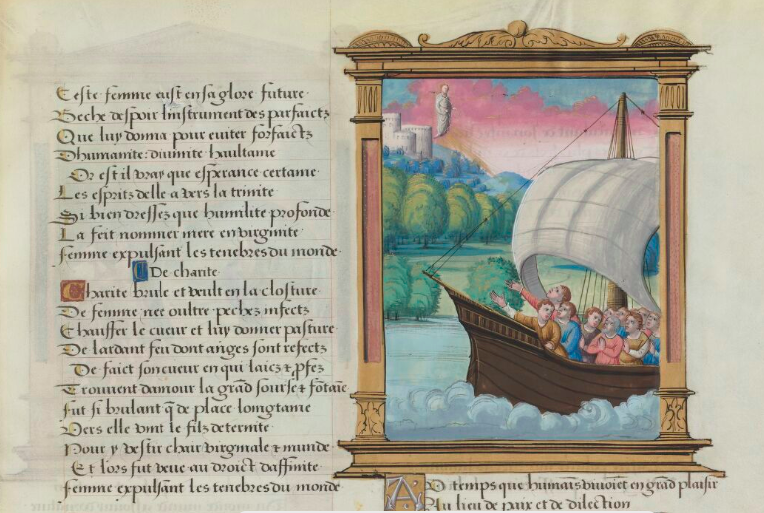 Ceste femme eust en sa glore future
Beche despoir linstrument des parfaictz
Que luy donna pour euiter forfaictz
Dhumanite: diuinite haultame
Or est il vray que esperance certame
Les espritz delle a vers la trinite
Si bien dressez que humilite profonde
La feit nommer mere en virginite
femme expulsant les tenebres du monde
De charite
Charite brule et veult en la closture
De femme nee oultre pechez infectz
Chauffer le cueur et luy donner pasture
De lardant feu dont anges sont refectz
De faict son cueur en qui laicz & pfez
Trouuent damour la grad sourse & fotaie
fut si brulant q̃ de place longtame
Vers elle vint le filz deternite
Pour y vestir chair virginale & munde
Et lors fut veue au droict daffinite
femme expulsant les tenebres du monde
AV temps que humais viuoiet en grad plaisir
Au lieu de paix et de dilection